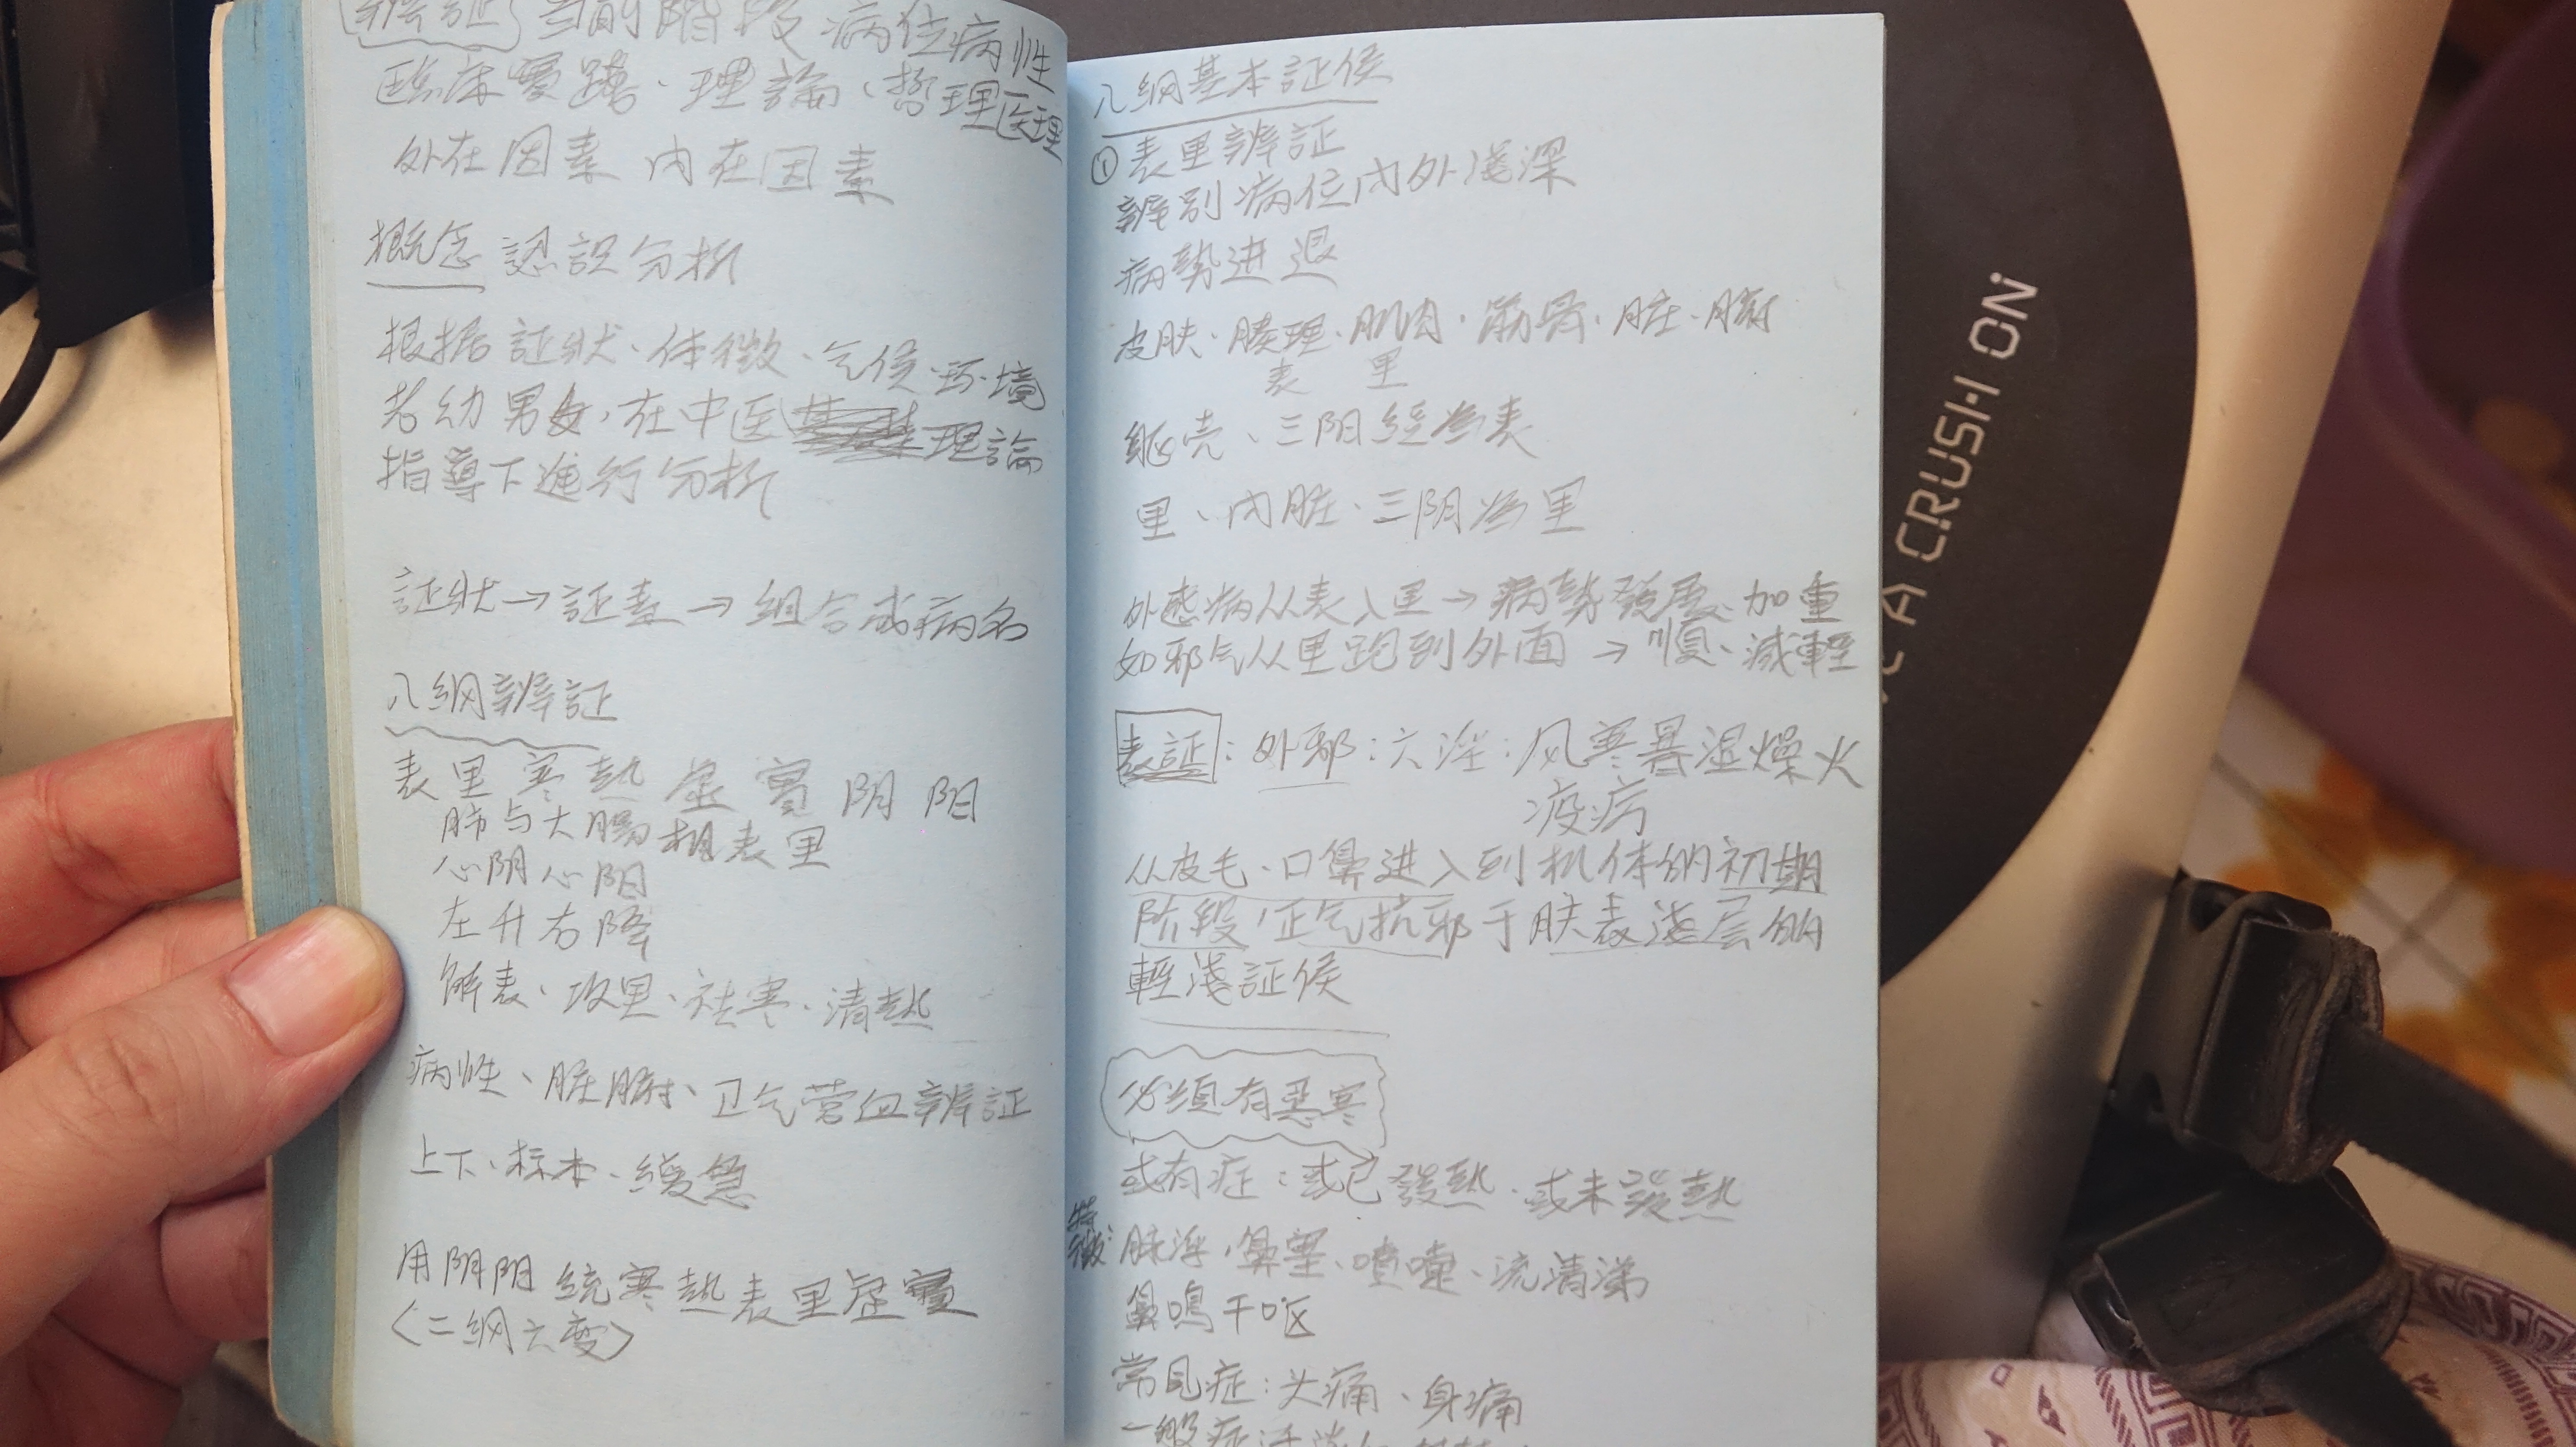 辨証 当前階段 病位病性
臨床實踐、理論、哲理医理
外在因素 内在因素
概念 認識分析
根据証狀、体徵、气侯、环境
老幼男女，在中医理論
指導下進行分析
証狀→証素→組合成病名
八綱辨証
表里寒熱虛實阴阳
肺与大腸相表里
心阴心阳
左升右降
解表、攻里、祛寒、清熱
病性、脏腑、卫气营血辨証
上下、标本、緩急
用阴阳統寒熱表里虛實
(二綱六变)
八綱基本証侯
① 表里辨証
辨别病位内外淺深
病勢进退
皮肤、腠理、肌肉、筋骨、脏、腑
表 里
躯壳、三阳經為表
里、内脏、三阴為里
外感病从表入里→病勢發展、加重
如邪气从里跑到外面→順、減輕
表証：外邪：六淫：风寒暑湿燥火
疫病
从皮毛、口鼻进入到机体的初期
阶段，正气抗邪于肤表淺层的
輕淺証侯
必須有惡寒
或有症：或已發熱、或未發熱
特徵：脉浮，鼻塞、噴嚏、流清涕
鼻鳴干呕
常见症：头痛、身痛
一般症
A CRUSH ON